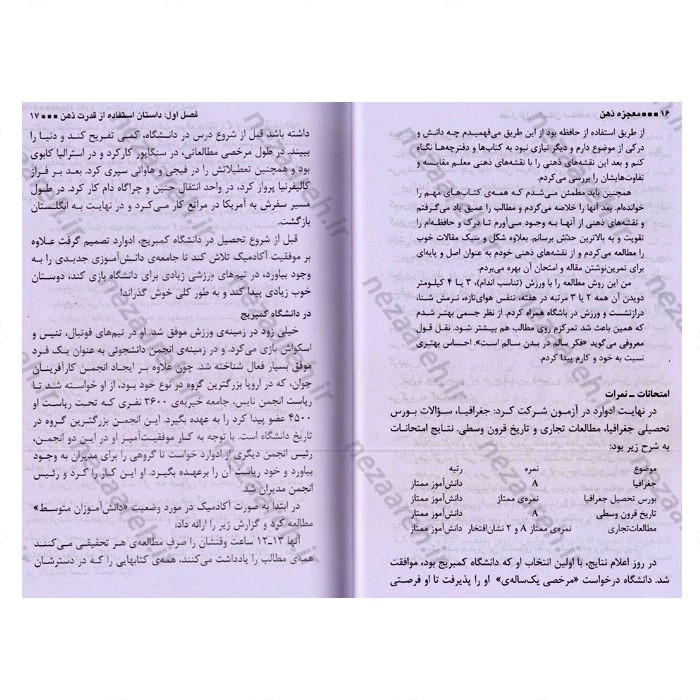 ۱۶ ■■■ معجزه ذهن
از طریق استفاده از حافظه بود از این طریق می‌فهمیدم چه دانش و
درکی از موضوع دارم و دیگر نیازی نبود به کتاب‌ها و دفترچه‌ها نگاه
کنم و بعد این نقشه‌های ذهنی را با نقشه‌های ذهنی معلم مقایسه و
تفاوت‌هایشان را بررسی می‌کردم.
همچنین باید مطمئن می‌شدم که همه‌ی کتاب‌های مهم را
خوانده‌ام. بعد آنها را خلاصه می‌کردم و مطالب را عمیق یاد می‌گرفتم
و نقشه‌های ذهنی از آنها به وجود می‌آورم تا درک و حافظه‌ام را
تقویت و به بالاترین حدّش برسانم. بعلاوه شکل و سبک مقالات خوب
را مطالعه می‌کردم و از نقشه‌های ذهنی خودم به عنوان اصل و پایه‌ای
برای تمرین‌نوشتن مقاله و امتحان آن بهره می‌بردم.
من این روش مطالعه را با ورزش (تناسب اندام)، ۳ یا ۴ کیلومتر
دویدن آن همه ۲ یا ۳ مرتبه در هفته، تنفس هوای‌تازه، نرمش شنا،
درازنشست و ورزش در باشگاه همراه کردم. از نظر جسمی بهتر شدم
که همین باعث شد تمرکزم روی مطالب هم بیشتر شود. نقل قول
معروفی می‌گوید «فکر سالم در بدن سالم است». احساس بهتری
نسبت به خود و کارم پیدا کردم.
امتحانات ـ نمرات
در نهایت ادوارد در آزمون شرکت کرد: جغرافیا، سؤالات بورس
تحصیلی جغرافیا، مطالعات تجاری و تاریخ قرون وسطی. نتایج امتحانات
به شرح زیر بود:
موضوع نمره رتبه
جغرافیا A دانش‌آموز ممتاز
بورس تحصیل جغرافیا نمره‌ی ممتاز دانش‌آموز ممتاز
تاریخ قرون وسطی A دانش‌آموز ممتاز
مطالعات‌تجاری نمره‌ی ممتاز A و ۲ نشان‌افتخار دانش‌آموز ممتاز
در روز اعلام نتایج، با اولین انتخاب او که دانشگاه کمبریج بود، موافقت
شد. دانشگاه درخواست «مرخصی یک‌ساله‌ی» او را پذیرفت تا او فرصتی
فصل اول: داستان استفاده از قدرت ذهن ■■■ ۱۷
داشته باشد قبل از شروع درس در دانشگاه، کمی تفریح کند و دنیا را
ببیند. در طول مرخصی مطالعاتی، در سنگاپور کارکرد و در استرالیا کابوی
بود و همچنین تعطیلاتش را در فیجی و هاوائی سپری کرد. بعد بر فراز
کالیفرنیا پرواز کرد، در واحد انتقال جنین و چراگاه دام کار کرد. در طول
مسیر سفرش به آمریکا در مراتع کار می‌کرد و در نهایت به انگلستان
بازگشت.
قبل از شروع تحصیل در دانشگاه کمبریج، ادوارد تصمیم گرفت علاوه
بر موفقیت آکادمیک تلاش کند تا جامعه‌ی دانش‌آموزی جدیدی را به
وجود بیاورد، در تیم‌های ورزشی زیادی برای دانشگاه بازی کند، دوستان
خوب زیادی پیدا کند و به طور کلی خوش گذراند!
در دانشگاه کمبریج
خیلی زود در زمینه‌ی ورزش موفق شد. او در تیم‌های فوتبال، تنیس و
اسکواش بازی می‌کرد. و در زمینه‌ی انجمن دانشجوئی به عنوان یک فرد
موفق بسیار فعال شناخته شد. چون علاوه بر ایجاد انجمن کارآفرینان
جوان، که در اروپا بزرگترین گروه در نوع خود بود، از او خواسته شد تا
ریاست انجمن نایس، جامعه خیریه‌ی ۳۶۰۰ نفری که تحت ریاست او
۴۵۰۰ عضو پیدا کرد را به عهده بگیرد. این انجمن بزرگترین گروه در
تاریخ دانشگاه است. با توجه به کار موفقیت‌آمیز او در این دو انجمن،
رئیس انجمن دیگری از ادوارد خواست تا گروهی را برای مدیران به وجود
بیاورد و خود ریاست آن را برعهده بگیرد. او این کار را کرد و رئیس
انجمن مدیران شد.
در ابتدا به صورت آکادمیک در مورد وضعیت «دانش‌آموزان متوسط»
مطالعه کرد و گزارش زیر را ارائه داد:
آنها ۱۳-۱۲ ساعت وقتشان را صرف مطالعه‌ی هر تحقیقی می‌کنند
همه‌ی مطالب را یادداشت می‌کنند، همه‌ی کتابهایی را که در دسترشان
nezaareh.ir